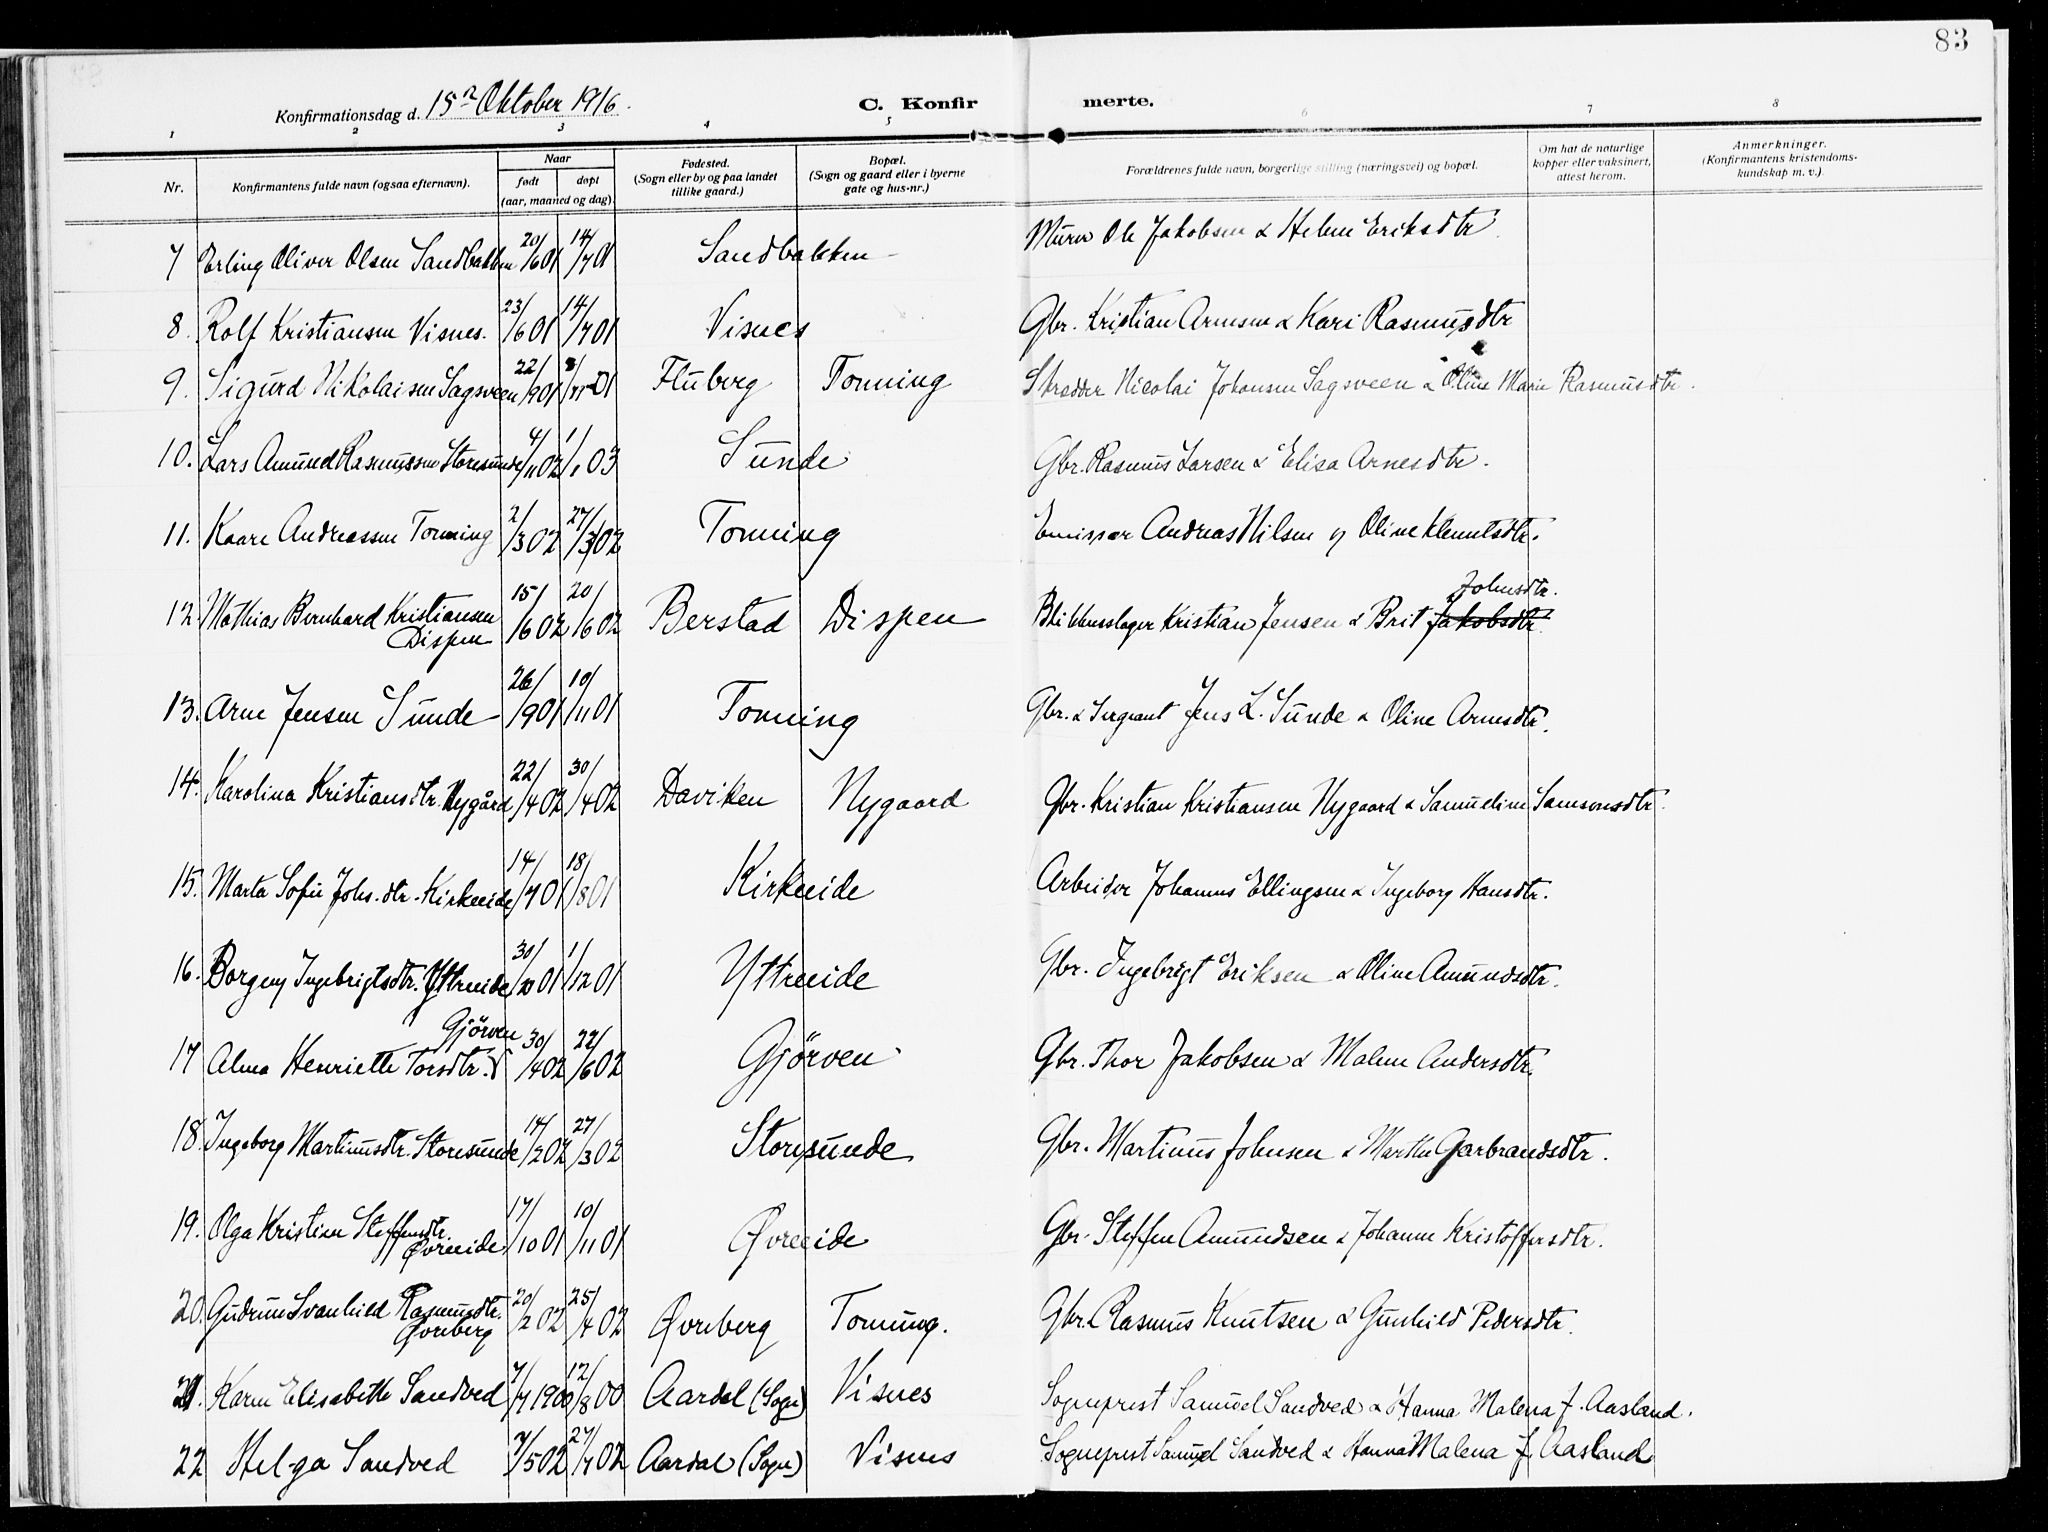 83
Konfirmationsdag d. 15de Oktober 1916.
C. Konfirmerte.
1 2 3 4 5 6 7 8
Nr.
Konfirmantens fulde navn (ogsaa efternavn).
Naar
født døpt
(aar, maaned og dag).
Fødested.
(Sogn eller by og paa landet
tillike gaard.)
Bopæl.
(Sogn og gaard eller i byerne
gate og hus-nr.)
Forældrenes fulde navn, borgerlige stilling (næringsvei) og bopæl.
Om hat de naturlige
kopper eller vaksinert,
attest herom.
Anmerkninger.
(Konfirmantens kristendoms-
kundskap m. v.)
7 Erling Oliver Olsen Sandbakken 20/6 01 14/7 01 Sandbakken Murer Ole Jakobsen & Helene Eriksdtr.
8. Rolf Kristiansen Visnes. 23/6 01 14/7 01 Visnes Gbr. Kristian Arnesen & Kari Rasmusdtr
9. Sigurd Nikolaisen Sagsveen 22/9 01 3/11 01 Fluberg Tonning Skrædder Nicolai Johansen Sagsveen & Oline Marie Rasmusdtr.
10. Lars Amund Rasmussen Storesunde 4/11 02 1/1 03 Sunde Gbr. Rasmus Larsen & Elisa Arnesdtr.
11. Kaare Andreassen Tonning 2/3 02 27/3 02 Tonning Emissær Andreas Nilsen og Oline Klemetsdtr.
12. Mathias Bernhard Kristiansen Dispen 15/6 02 20/6 02 Berstad Dispen Blikkenslager Kristian Jensen & Brit Jakobsdtr. Johnsdtr.
13. Arne Jensen Sunde 26/9 01 10/11 01 Tonning Gbr. & Sergeant Jens L. Sunde & Oline Arnesdtr.
14. Karolina Kristiansdtr. Nygård 22/4 02 30/4 02 Daviken Nygaard Gbr. Kristian Kristiansen Nygaard & Samueline Samsonsdtr.
15. Marta Sofie Johs.dtr. Kirkeeide 14/7 01 18/8 01 Kirkeeide Arbeider Johannes Ellingsen & Ingeborg Hansdtr.
16. Borgny Ingebrigtsdtr. Yttreeide 30/10 01 1/12 01 Yttreeide Gbr. Ingebrigt Eriksen & Oline Amundsdtr.
17 Alma Henriette Torsdtr. Gjörven 30/4 02 22/6 02 Gjörven Gbr. Thor Jakobsen & Malene Andersdtr.
18. Ingeborg Martinusdtr. Storesunde 14/2 02 27/3 02 Storesunde Gbr. Martinus Johnsen & Marthe Garbrandsdtr.
19. Olga Kristine Steffensdtr. Øvreeide 17/10 01 10/11 01 Øvreeide Gbr. Steffen Amundsen & Johanne Kristoffersdtr.
20. Gudrun Svanhild Rasmusdtr. Øvreberg 20/2 02 25/4 02 Øvreberg Tonning. Gbr. Rasmus Knutsen & Gunhild Pedersdtr.
21. Karen Elisabeth Sandved 7/7 1900 12/8 00 Aardal (Sogn) Visnes Sogneprest Samuel Sandved & Hanna Malena f. Aasland.
22 Helga Sandved 7/5 02 27/7 02 Aardal (Sogn) Visnes Sogneprest Samuel Sandved & Hanna Malena f. Aasland